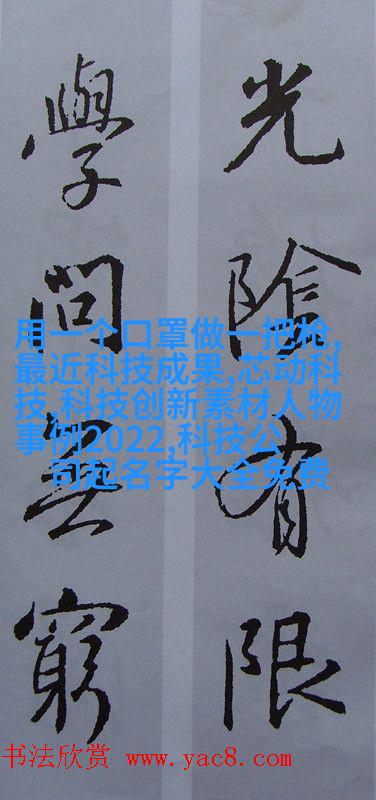 光陰有限
學問無窮
用一个口罩做一把枪,
最近科技成果,芯动科
技,科技创新素材人物
事例2022,科技公
司起名字大全免费
书法欣赏 www.yac8.com